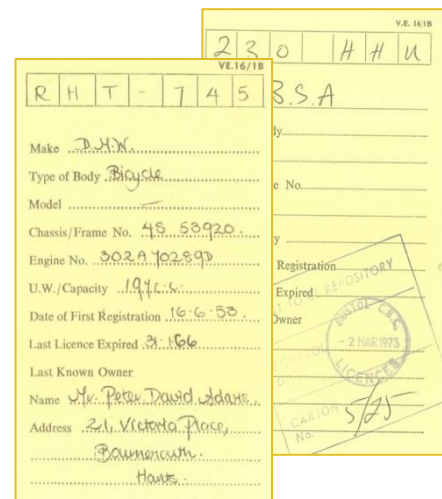 V.E. 16/1B
230 HHU
B.S.A
dy
e No.
y
Registration
Expired
Owner
REPOSITORY
BRISTOL C.B.C.
- 2 MAR 1973
LICENCES
CARTON
No. 5/25
VE.16/1B
RHT-745
Make D.M.W.
Type of Body Bicycle
Model —
Chassis/Frame No. 4S 53920.
Engine No. 302A70289D
U.W./Capacity 197c.c.
Date of First Registration 16.6.53.
Last Licence Expired 31.1.66
Last Known Owner
Name Mr. Peter David Adams.
Address 21, Victoria Place,
Bournemouth.
Hants.